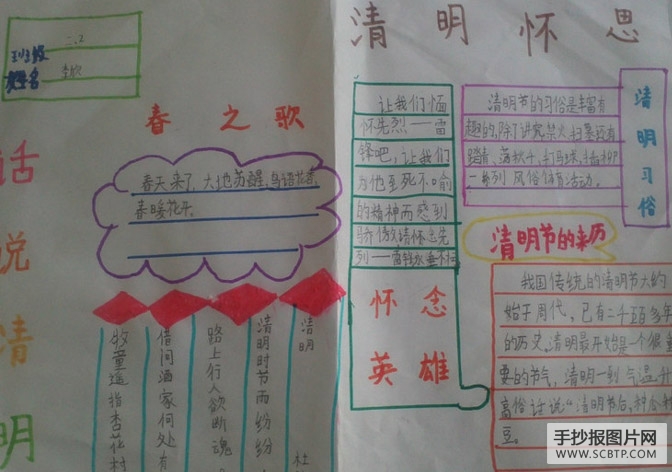 班级 二.2
姓名 李欣
话说清明
春之歌
春天来了,大地苏醒,鸟语花香,
春暖花开。
清明
清明时节雨纷纷
路上行人欲断魂
借问酒家何处有
牧童遥指杏花村
清明怀思
让我们缅
怀先烈——雷
锋吧,让我们
为他至死不喻
的精神而感到
骄傲,请怀念先
烈——雷锋永垂不朽
怀念
英雄
清明节的习俗是丰富有
趣的,除了讲究禁火、扫墓,还有
踏青、荡秋千、打马球、插柳
一系列风俗体育活动。
清明习俗
清明节的来历
我国传统的清明节大约
始于周代,已有二千五百多年
的历史,清明最开始是一个很重
要的节气,清明一到气温升
高,俗话说“清明节后,种瓜种
豆。
手抄报图片网
WWW.SCBTP.COM